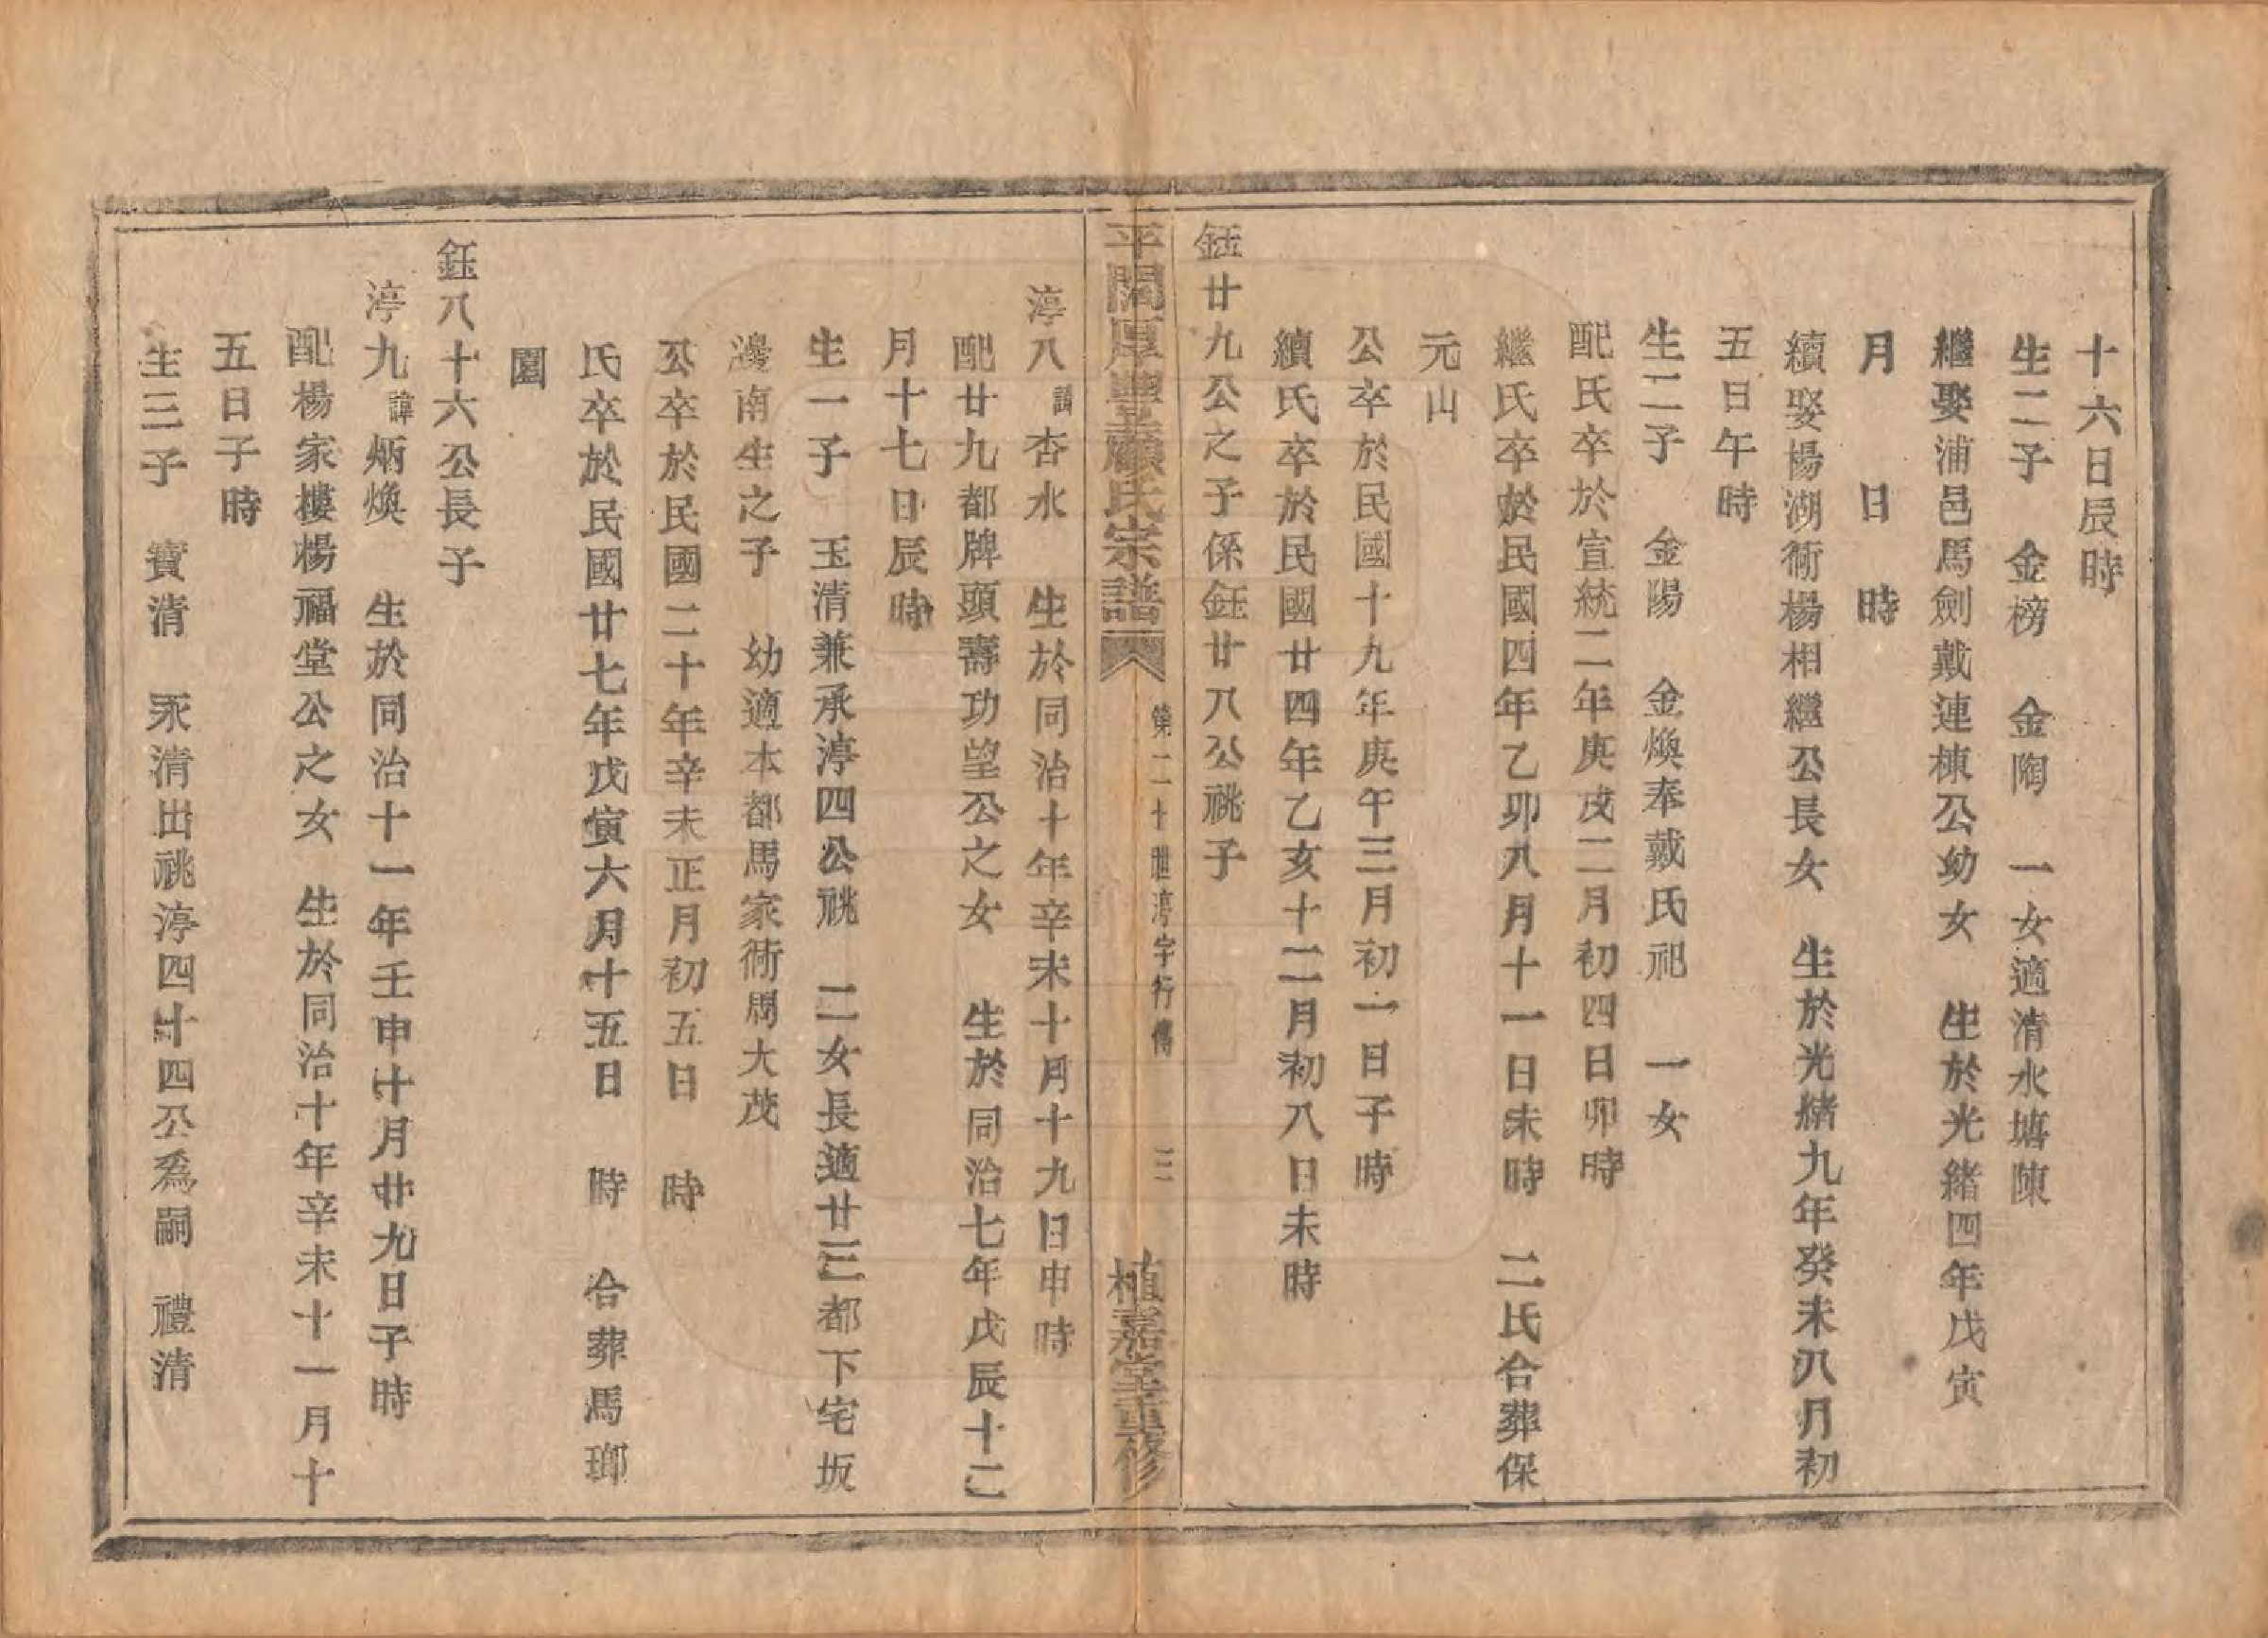 十六日辰時
生二子　金榜　金陶　一女適清水塘陳
繼娶浦邑馬劍戴連棟公幼女　生於光緒四年戊寅
月　日　時
續娶楊湖衕楊相繼公長女　生於光緒九年癸未八月初
五日午時
生二子　金陽　金煥奉戴氏祀　一女
配氏卒於宣統二年庚戌二月初四日卯時
繼氏卒於民國四年乙卯八月十一日未時　二氏合葬保
元山
公卒於民國十九年庚午三月初一日子時
續氏卒於民國廿四年乙亥十二月初八日未時
鈺廿九公之子係鈺廿八公祧子
平闊厚豐顧氏宗譜　第二十世渟字行傳　三　植嘉堂重修
渟八諱杏水　生於同治十年辛未十月十九日申時
配廿九都牌頭壽功望公之女　生於同治七年戊辰十二
月十七日辰時
生一子　玉清兼承渟四公祧　二女長適廿三都下宅坂
邊南生之子　幼適本都馬家衕周大茂
公卒於民國二十年辛未正月初五日　時
氏卒於民國廿七年戊寅六月十五日　時　合葬馬瑯
園
鈺八十六公長子
渟九諱炳煥　生於同治十一年壬申十月廿九日子時
配楊家樓楊福堂公之女　生於同治十年辛未十一月十
五日子時
生三子　寶清　永清出祧渟四十四公爲嗣　禮清